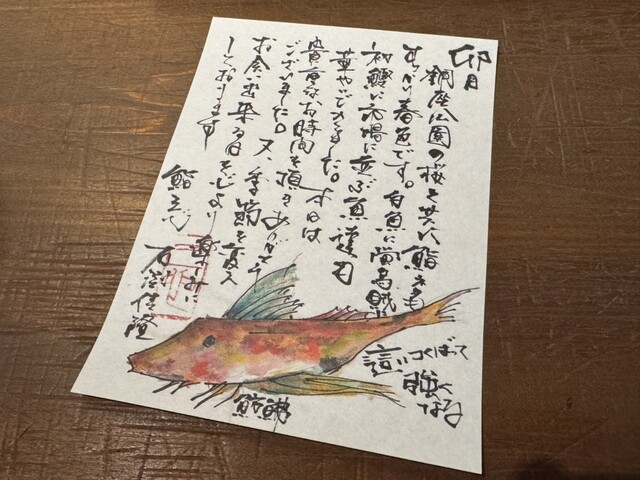 卯月
銅座公園の桜と共に鮨えも
すっかり春色です。白魚に蛍烏賊
初鰹に市場に並ぶ魚達も
華やいできました。本日は
貴重なお時間を頂きありがとう
ございました。又、季節を変え
お会い出来る日を心より
楽しみに
しております
鮨
這いつくばって
強くなる
魴鮄